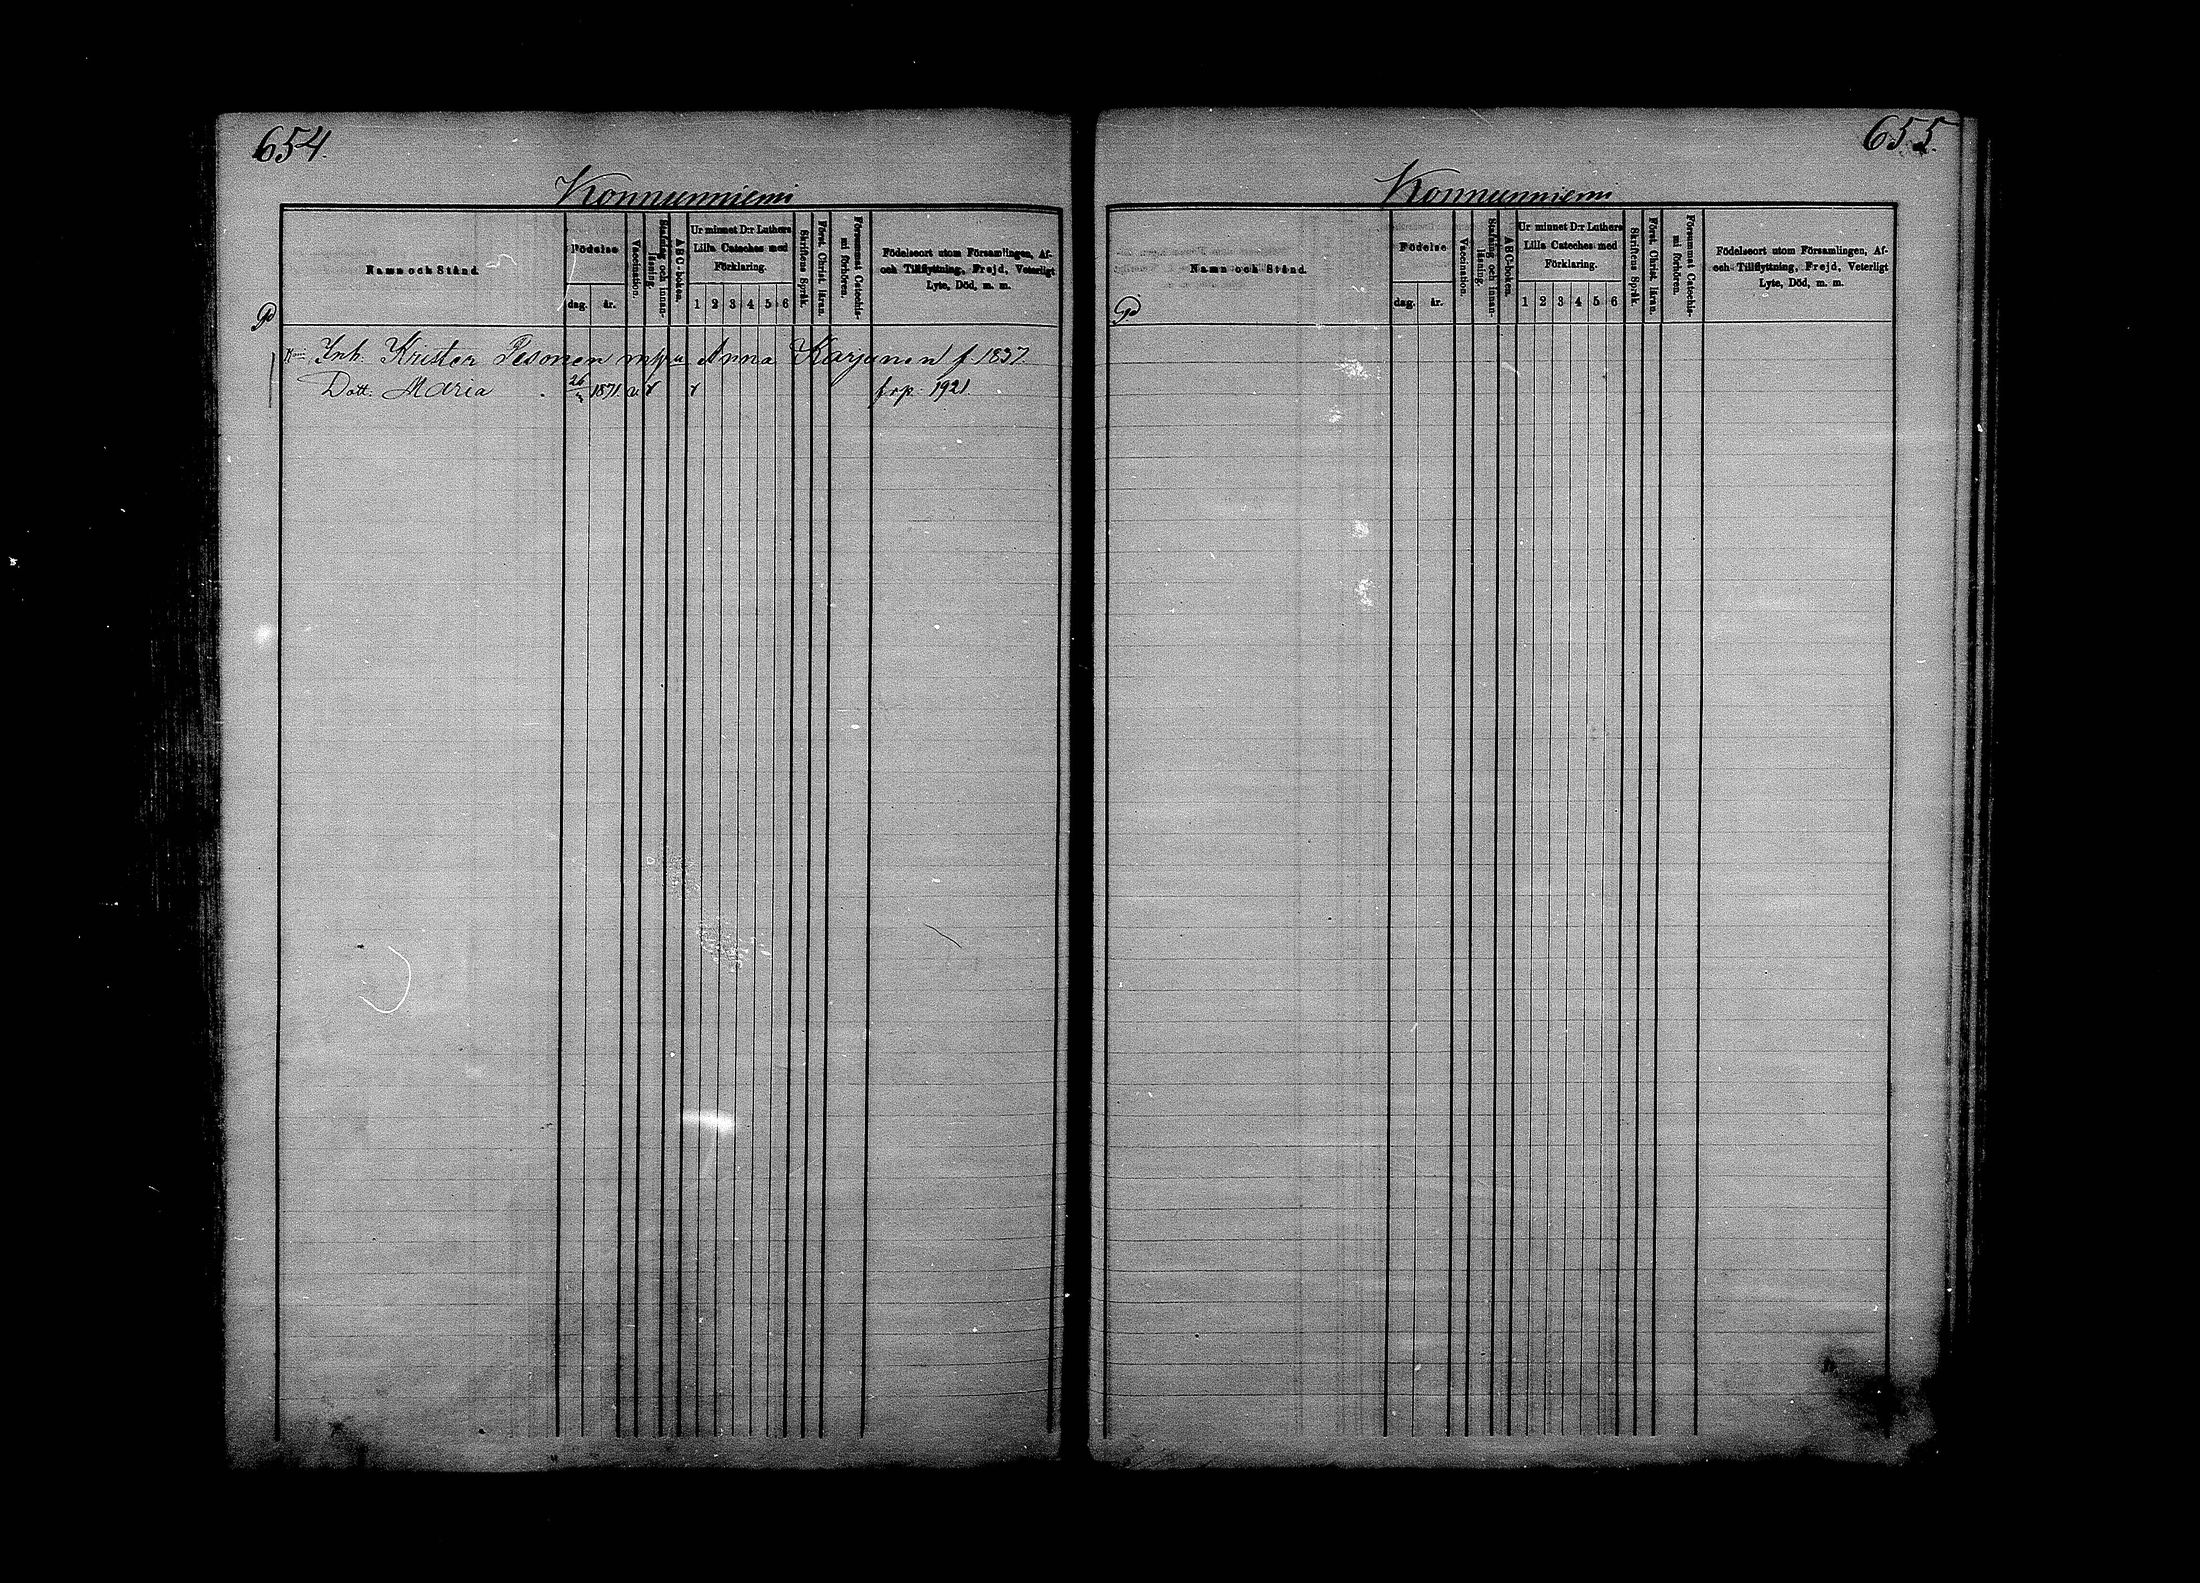 654.
Konnunniemi
Namn och Stånd.
Födelse
dag. år.
Vaccination.
Stafning och innan-
läsning.
ABC-boken.
Ur minnet D:r Luthers
Lilla Cateches med
Förklaring.
1 2 3 4 5 6
Skriftens Språk.
Först. Christ. läran.
Försummat Catechis-
mi förhören.
Födelseort utom Församlingen, Af-
och Tillflyttning, Frejd, Veterligt
Lyte, Död, m. m.
Inh. Krister Pesonen Anna Karjanen f. 1837.
Dott. Maria 26 1871. v. 1921.
655.
Konnunniemi
Namn och Stånd.
Födelse
dag. år.
Vaccination.
Stafning och innan-
läsning.
ABC-boken.
Ur minnet D:r Luthers
Lilla Cateches med
Förklaring.
1 2 3 4 5 6
Skriftens Språk.
Först. Christ. läran.
Försummat Catechis-
mi förhören.
Födelseort utom Församlingen, Af-
och Tillflyttning, Frejd, Veterligt
Lyte, Död, m. m.